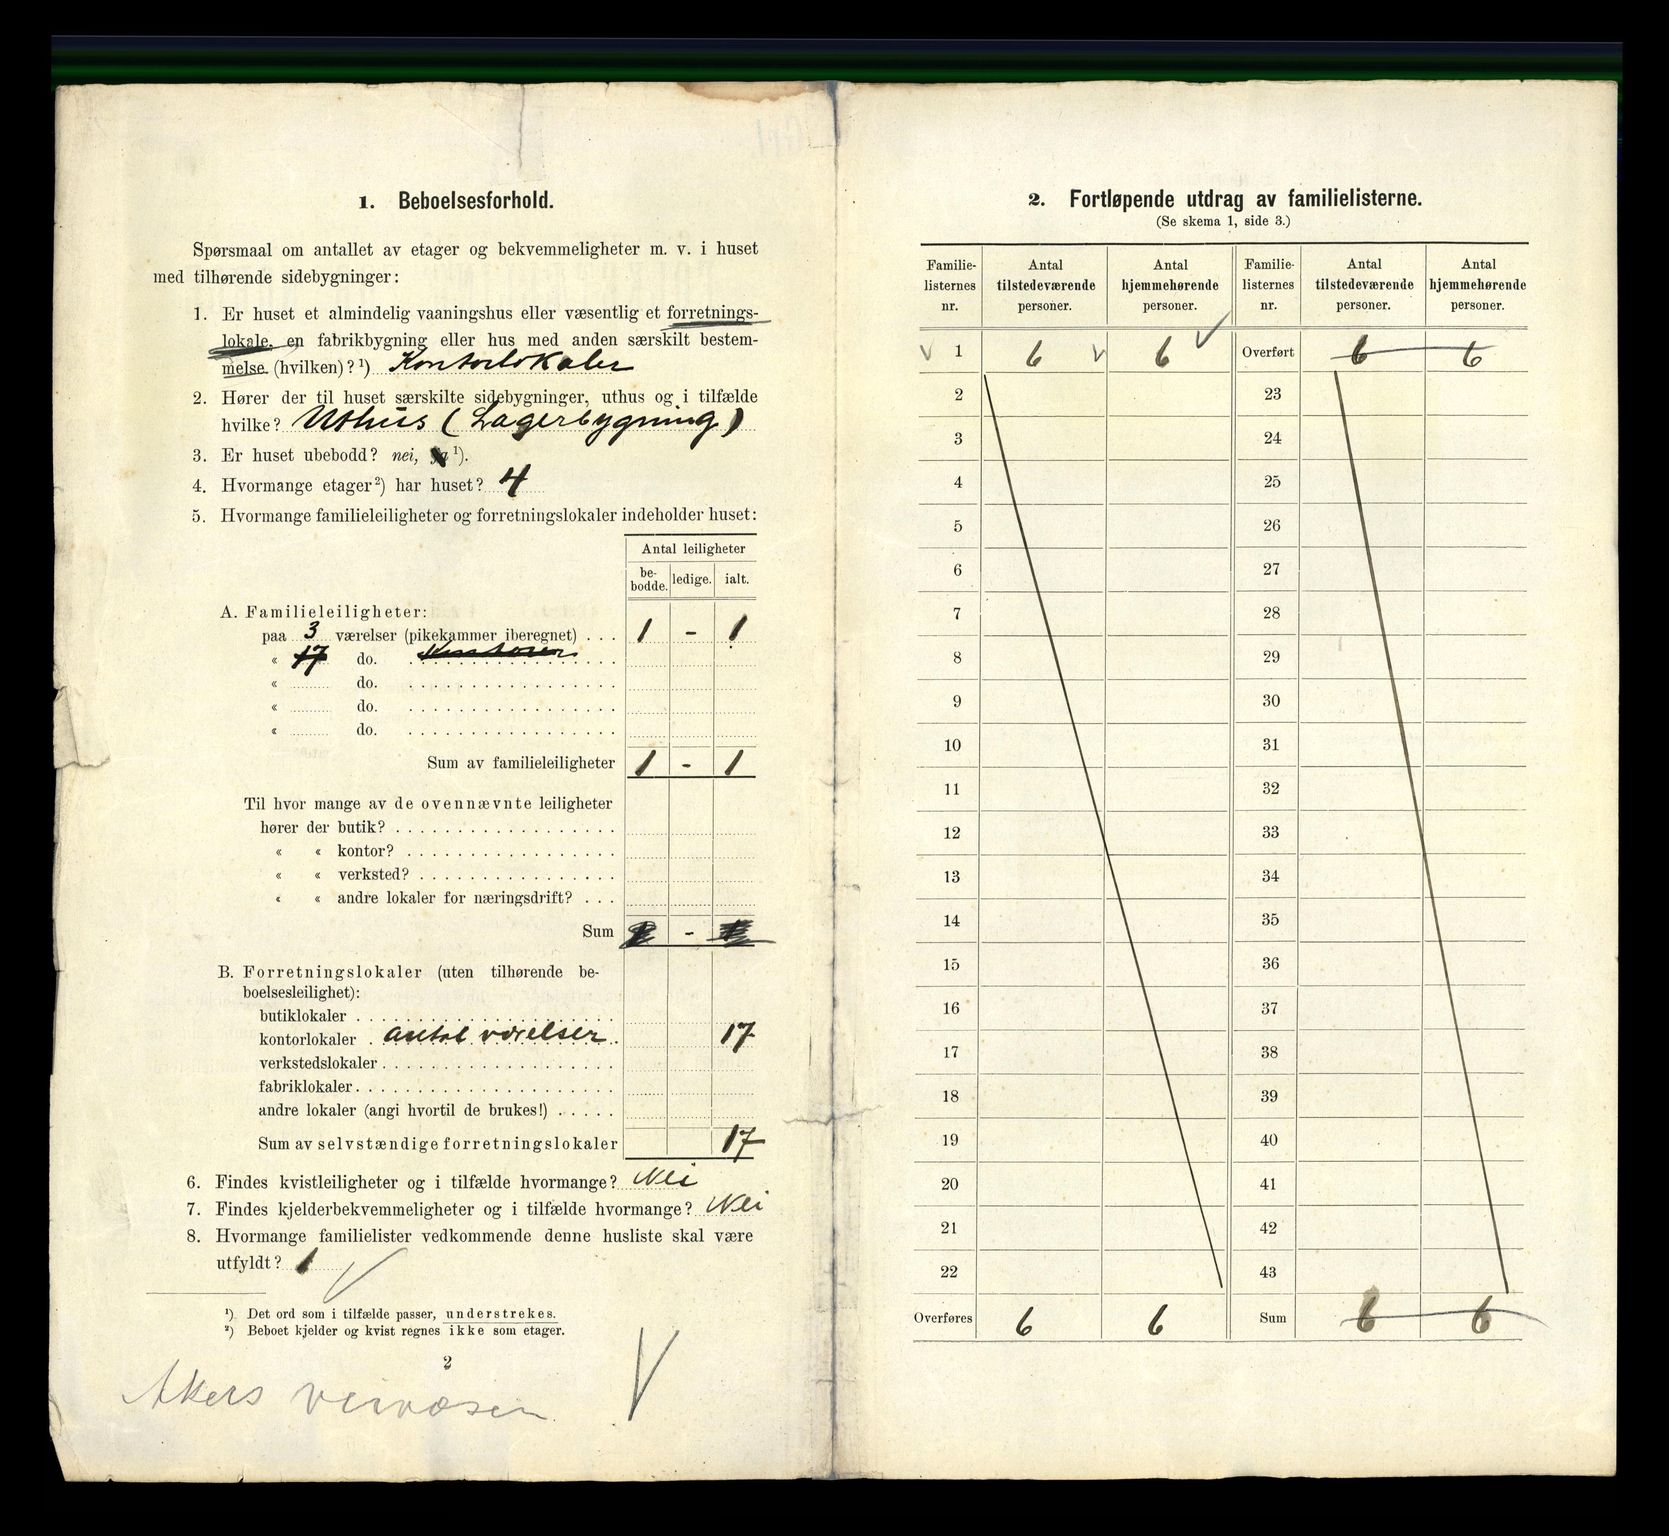 1. Beboelsesforhold.
Spørsmaal om antallet av etager og bekvemmeligheter m. v. i huset
med tilhørende sidebygninger:
1. Er huset et almindelig vaaningshus eller væsentlig et forretnings-
lokale, en fabrikbygning eller hus med anden særskilt bestem-
melse (hvilken)?¹) Kontorlokaler
2. Hører der til huset særskilte sidebygninger, uthus og i tilfælde
hvilke? Uthus (Lagerbygning)
3. Er huset ubebodd? nei, ja ¹).
4. Hvormange etager²) har huset? 4
5. Hvormange familieleiligheter og forretningslokaler indeholder huset:
Antal leiligheter
be-bodde. ledige. ialt.
A. Familieleiligheter:
paa 3 værelser (pikekammer iberegnet) . . . 1 - 1
« 17 do. Kontorer
« do.
« do.
« do.
Sum av familieleiligheter 1 - 1
Til hvor mange av de ovennævnte leiligheter
hører der butik?
« « kontor?
« « verksted?
« « andre lokaler for næringsdrift? . . .
Sum -
B. Forretningslokaler (uten tilhørende be-
boelsesleilighet):
butiklokaler
kontorlokaler antal værelser 17
verkstedslokaler
fabriklokaler
andre lokaler (angi hvortil de brukes!)
Sum av selvstændige forretningslokaler 17
6. Findes kvistleiligheter og i tilfælde hvormange? Nei
7. Findes kjelderbekvemmeligheter og i tilfælde hvormange? Nei
8. Hvormange familielister vedkommende denne husliste skal være
utfyldt? 1
¹) Det ord som i tilfælde passer, understrekes.
²) Beboet kjelder og kvist regnes ikke som etager.
2
Akers veivæsen
2. Fortløpende utdrag av familielisterne.
(Se skema 1, side 3.)
Familie- Antal Antal Familie- Antal Antal
listernes tilstedeværende hjemmehørende listernes tilstedeværende hjemmehørende
nr. personer. personer. nr. personer. personer.
1 6 6 Overført 6 6
2 23
3 24
4 25
5 26
6 27
7 28
8 29
9 30
10 31
11 32
12 33
13 34
14 35
15 36
16 37
17 38
18 39
19 40
20 41
21 42
22 43
Overføres 6 6 Sum 6 6